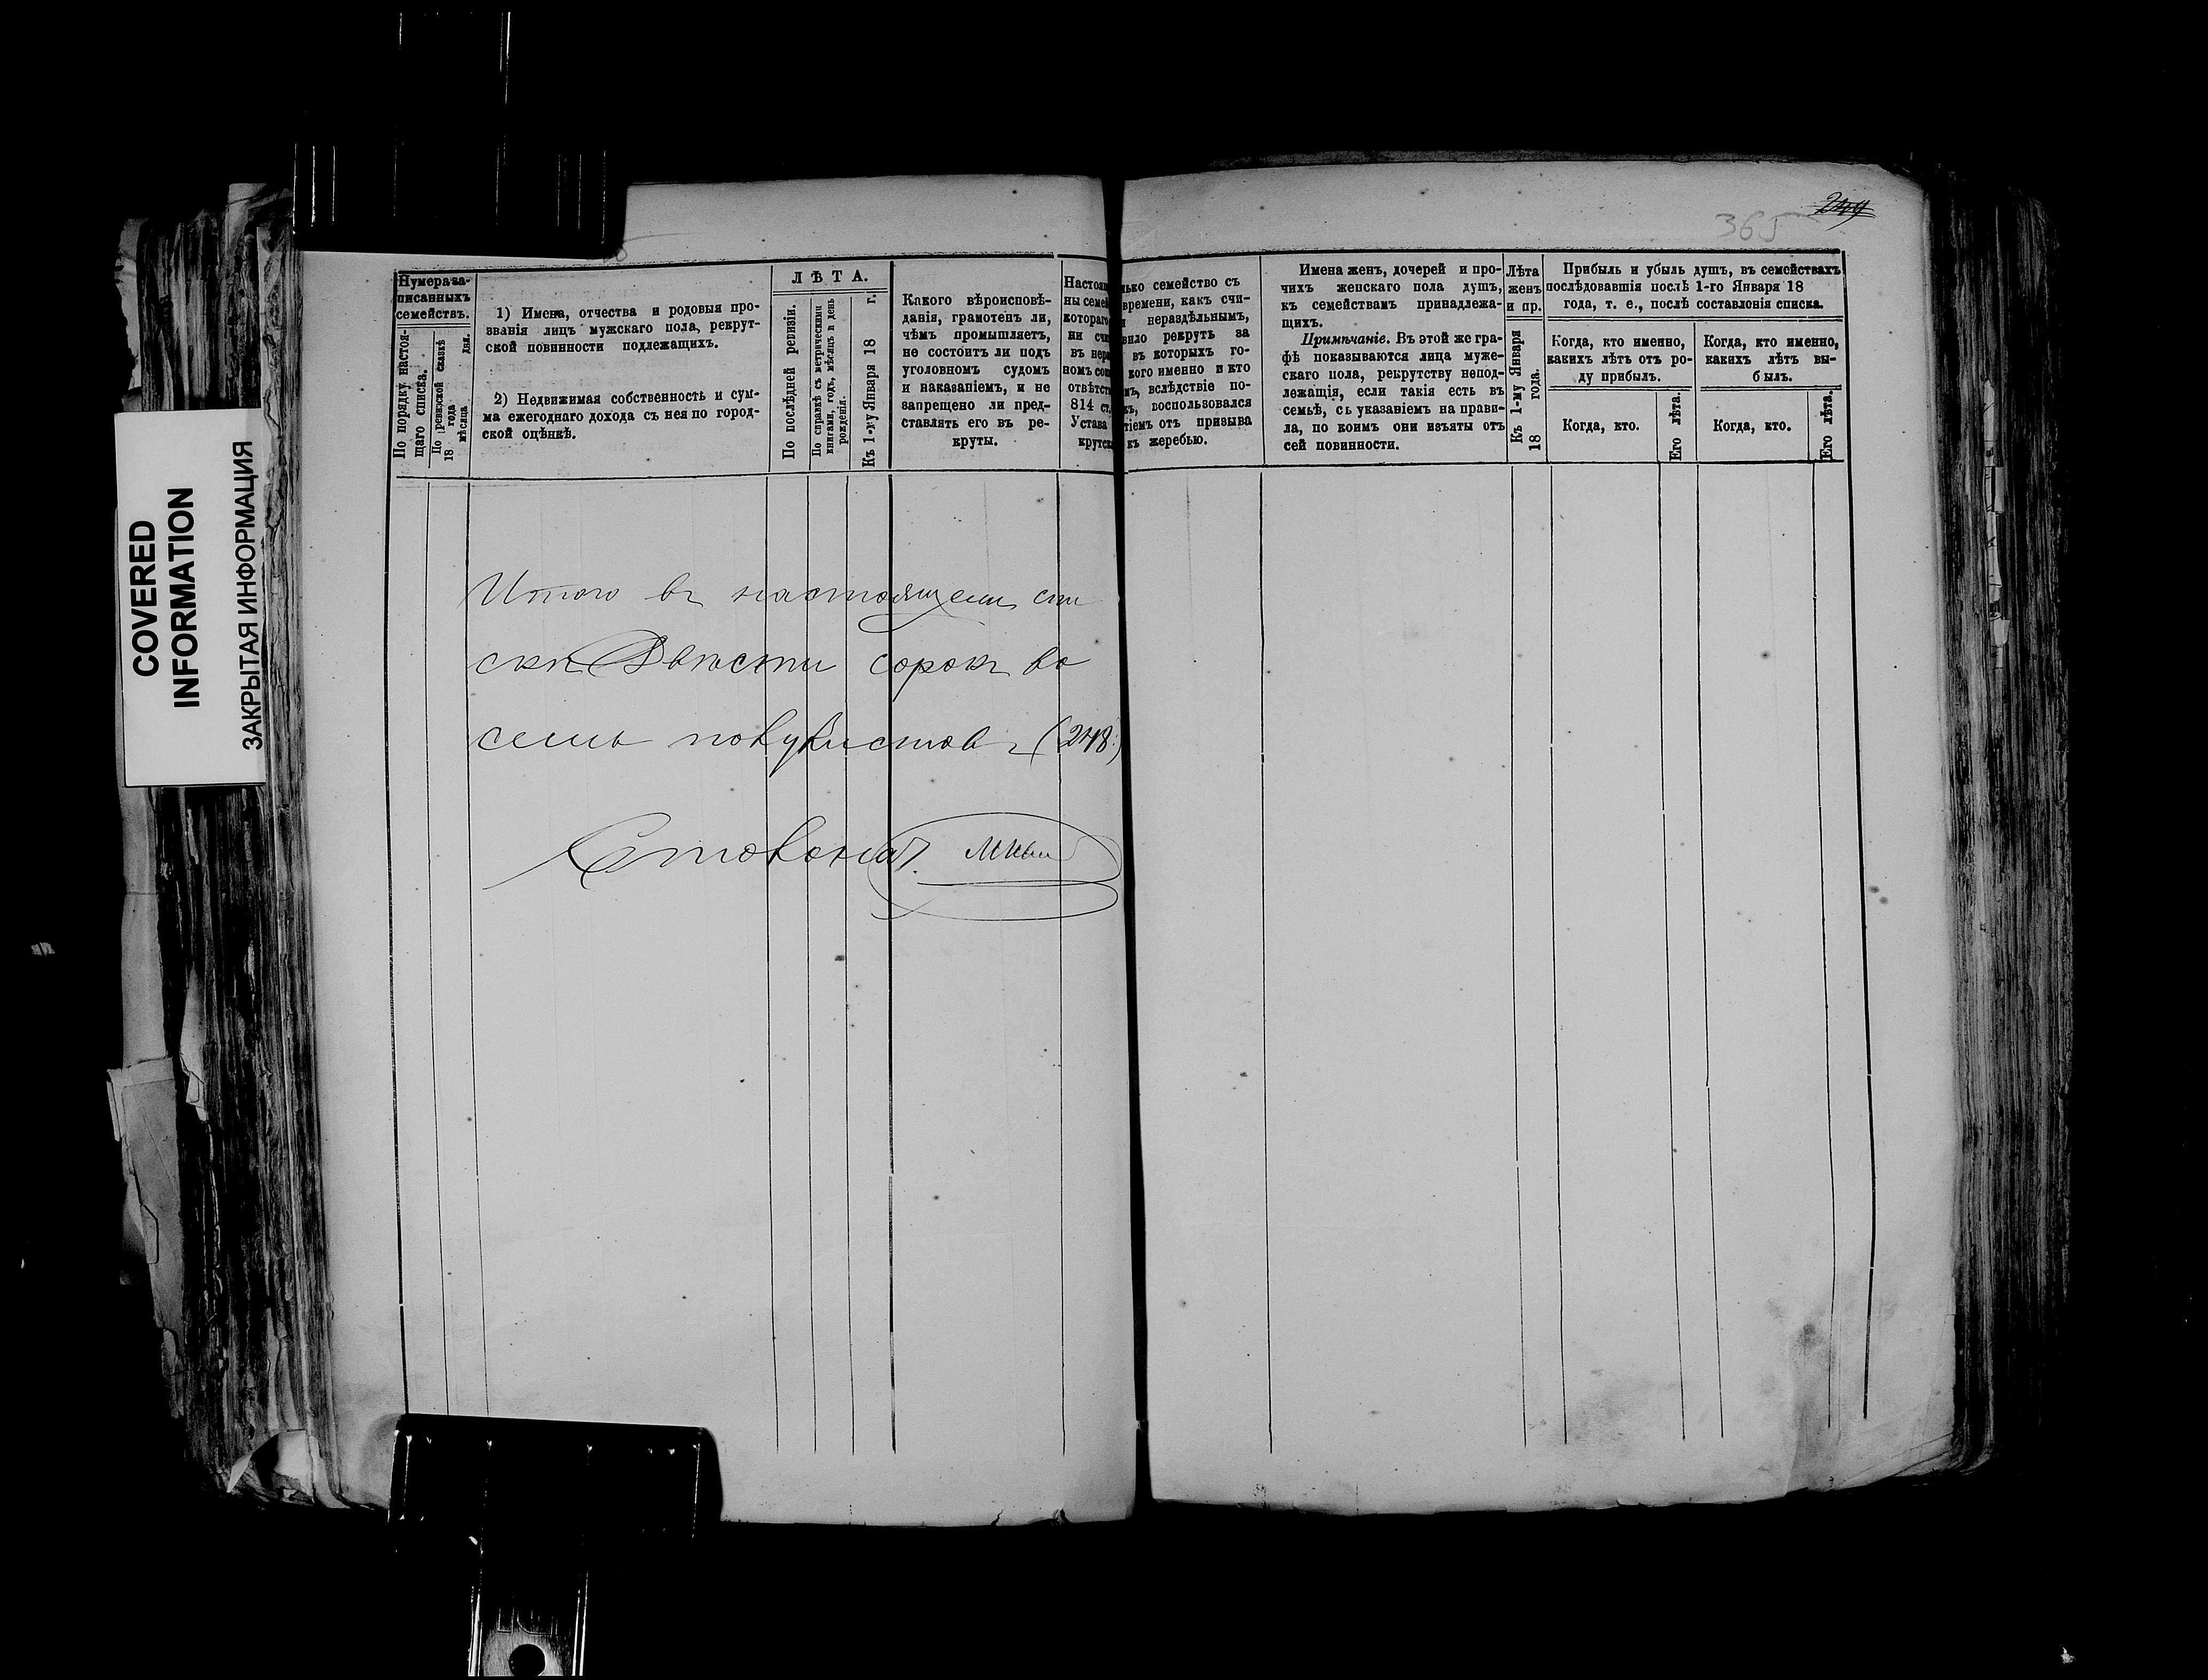 249
365
COVERED
INFORMATION
ЗАКРЫТАЯ ИНФОРМАЦИЯ
Нумера за-
писанныхъ
семействъ.
По порядку настоя-
щаго списка.
По ревизской сказкѣ
18 года
мѣсяца дня.
1) Имена, отчества и родовыя про-
званія лицъ мужскаго пола, рекрут-
ской повинности подлежащихъ.
2) Недвижимая собственность и сум-
ма ежегоднаго дохода съ нея по город-
ской оцѣнкѣ.
ЛѢТА.
По послѣдней ревизіи.
По справкѣ съ метрическими
книгами, годъ, мѣсяцъ и день
рожденія.
Къ 1-му Января 18 г.
Какого вѣроисповѣ-
данія, грамотенъ ли,
чѣмъ промышляетъ,
не состоитъ ли подъ
уголовнымъ судомъ
и наказаніемъ, и не
запрещено ли пред-
ставлять его въ ре-
круты.
Настоя
ны семей
котораго
ни счи
въ нера
номъ сос
отвѣтст
814 ст.
Устава
крутск
лько семейство съ
времени, какъ счи-
нераздѣльнымъ,
вило рекрутъ за
въ которыхъ го-
кого именно и кто
мъ, вслѣдствіе по-
къ, воспользовался
тіемъ отъ призыва
къ жеребью.
Имена женъ, дочерей и про-
чихъ женскаго пола душъ,
къ семействамъ принадлежа-
щихъ.
Примѣчаніе. Въ этой же гра-
фѣ показываются лица муже-
скаго пола, рекрутству непод-
лежащія, если такія есть въ
семьѣ, съ указаніемъ на прави-
ла, по коимъ они изъяты отъ
сей повинности.
Лѣта
женъ
и пр.
Къ 1-му Января
18 года.
Прибыль и убыль душъ, въ семействахъ
послѣдовавшія послѣ 1-го Января 18
года, т. е., послѣ составленія списка.
Когда, кто именно,
какихъ лѣтъ отъ ро-
ду прибылъ.
Когда, кто.
Его лѣта.
Когда, кто именно,
какихъ лѣтъ вы-
былъ.
Когда, кто.
Его лѣта.
Итого въ настоящемъ спи
скѣ Двѣсти сорокъ во
семь полулистовъ (248.)